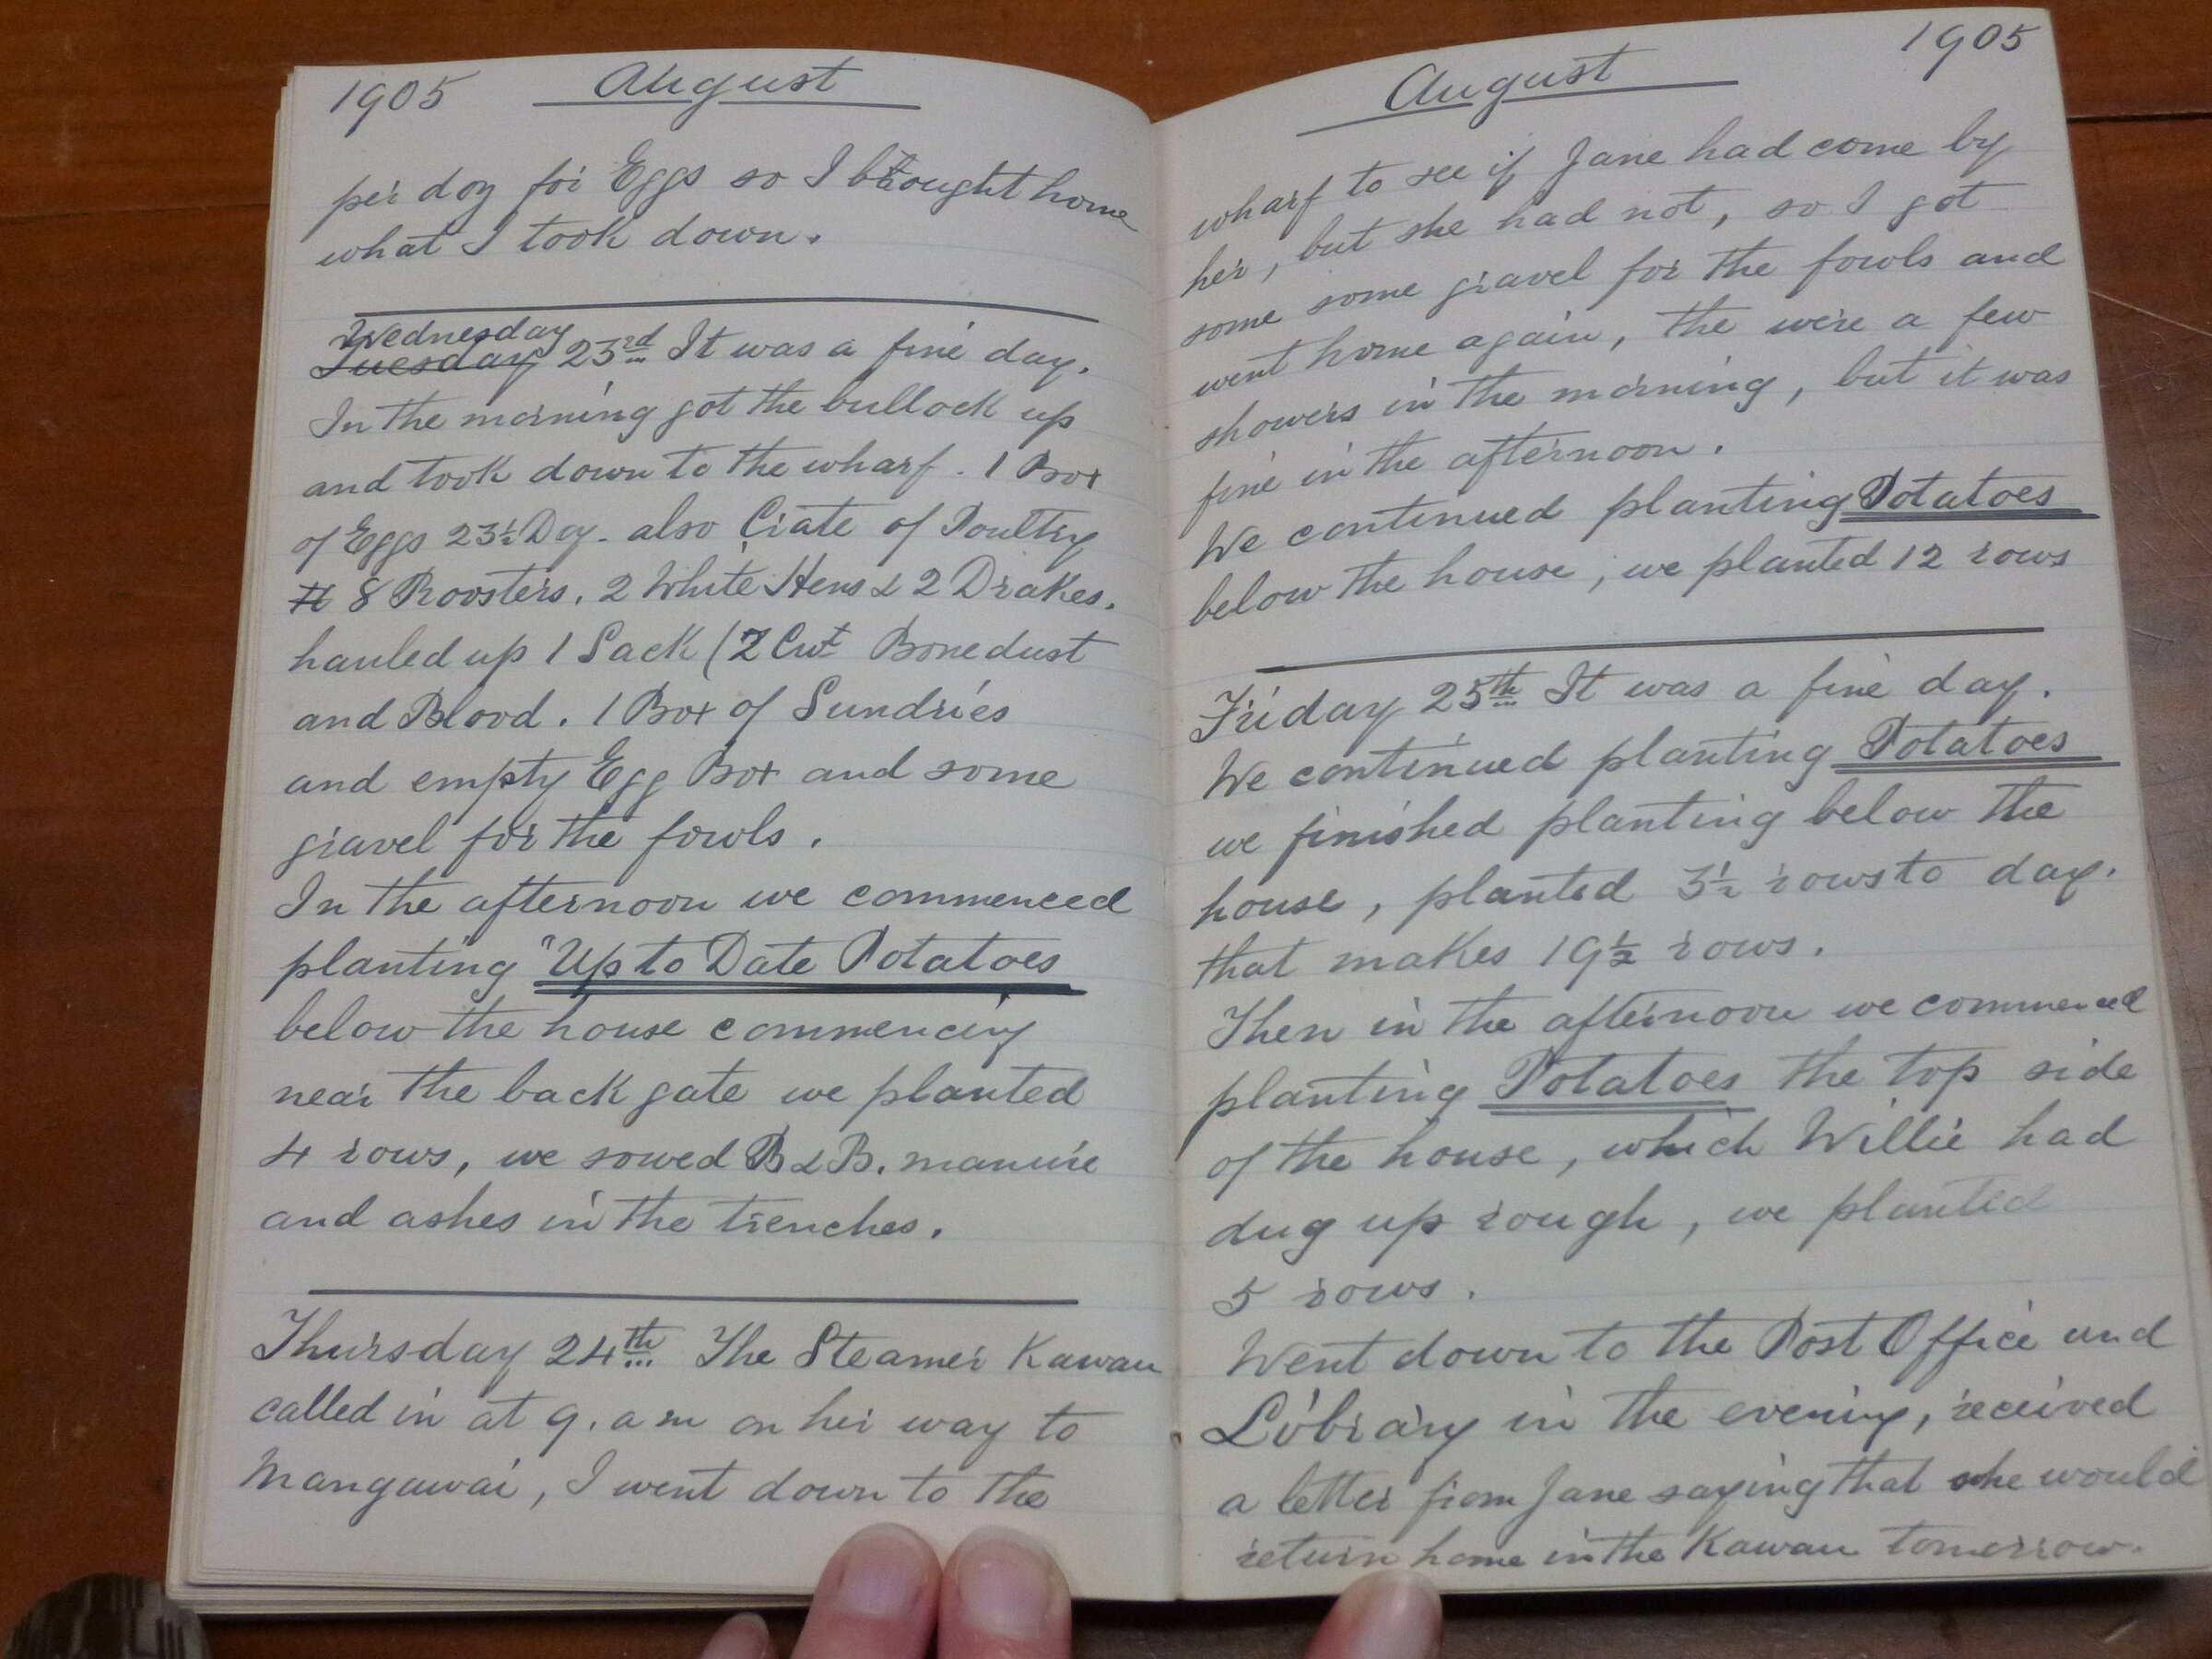 1905 August
per doz for Eggs so I brought home
what I took down.
Wednesday
Tuesday 23rd It was a fine day.
In the morning got the bullock up
and took down to the wharf. 1 Box
of Eggs 23½ Doz. also Crate of Poultry
8 Roosters, 2 White Hens & 2 Drakes.
hauled up 1 Sack (2 Cwt Bonedust
and Blood. 1 Box of Sundries
and empty Egg Box and some
gravel for the fowls.
In the afternoon we commenced
planting "Up to Date Potatoes
below the house commencing
near the back gate we planted
4 rows, we sowed B & B. manure
and ashes in the trenches.
Thursday 24th The Steamer Kawau
called in at 9. a m on her way to
Mangawai, I went down to the
August 1905
wharf to see if Jane had come by
her, but she had not, so I got
some some gravel for the fowls and
went home again, the were a few
showers in the morning, but it was
fine in the afternoon.
We continued planting Potatoes
below the house, we planted 12 rows
Friday 25th It was a fine day.
We continued planting Potatoes
we finished planting below the
house, planted 3½ rows to day.
that makes 19½ rows.
Then in the afternoon we commenced
planting Potatoes the top side
of the house, which Willie had
dug up rough, we planted
5 rows.
Went down to the Post Office and
Library in the evening, received
a letter from Jane saying that she would
return home in the Kawau tomorrow.